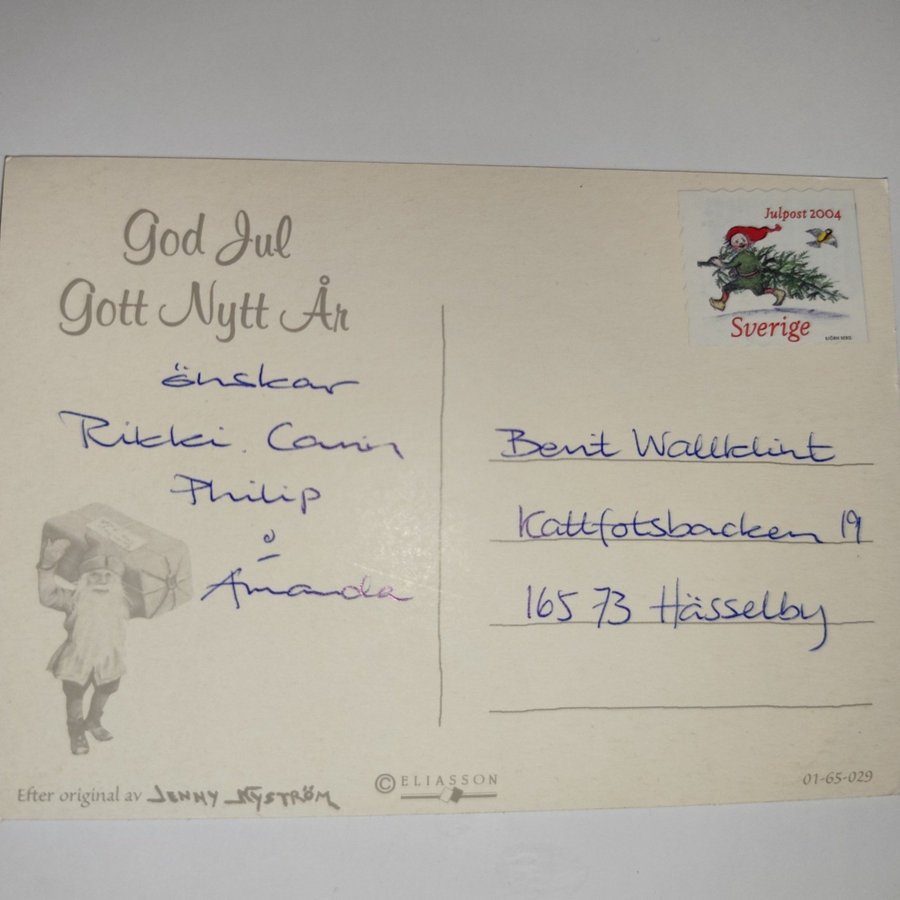 God Jul
Gott Nytt År
önskar
Rikki. Carin
Philip
o
Amanda
Julpost 2004
Sverige
BJÖRN BERG
Berit Wallklint
Kattfotsbacken 19
165 73 Hässelby
Efter original av JENNY NYSTRÖM
© ELIASSON
01-65-029